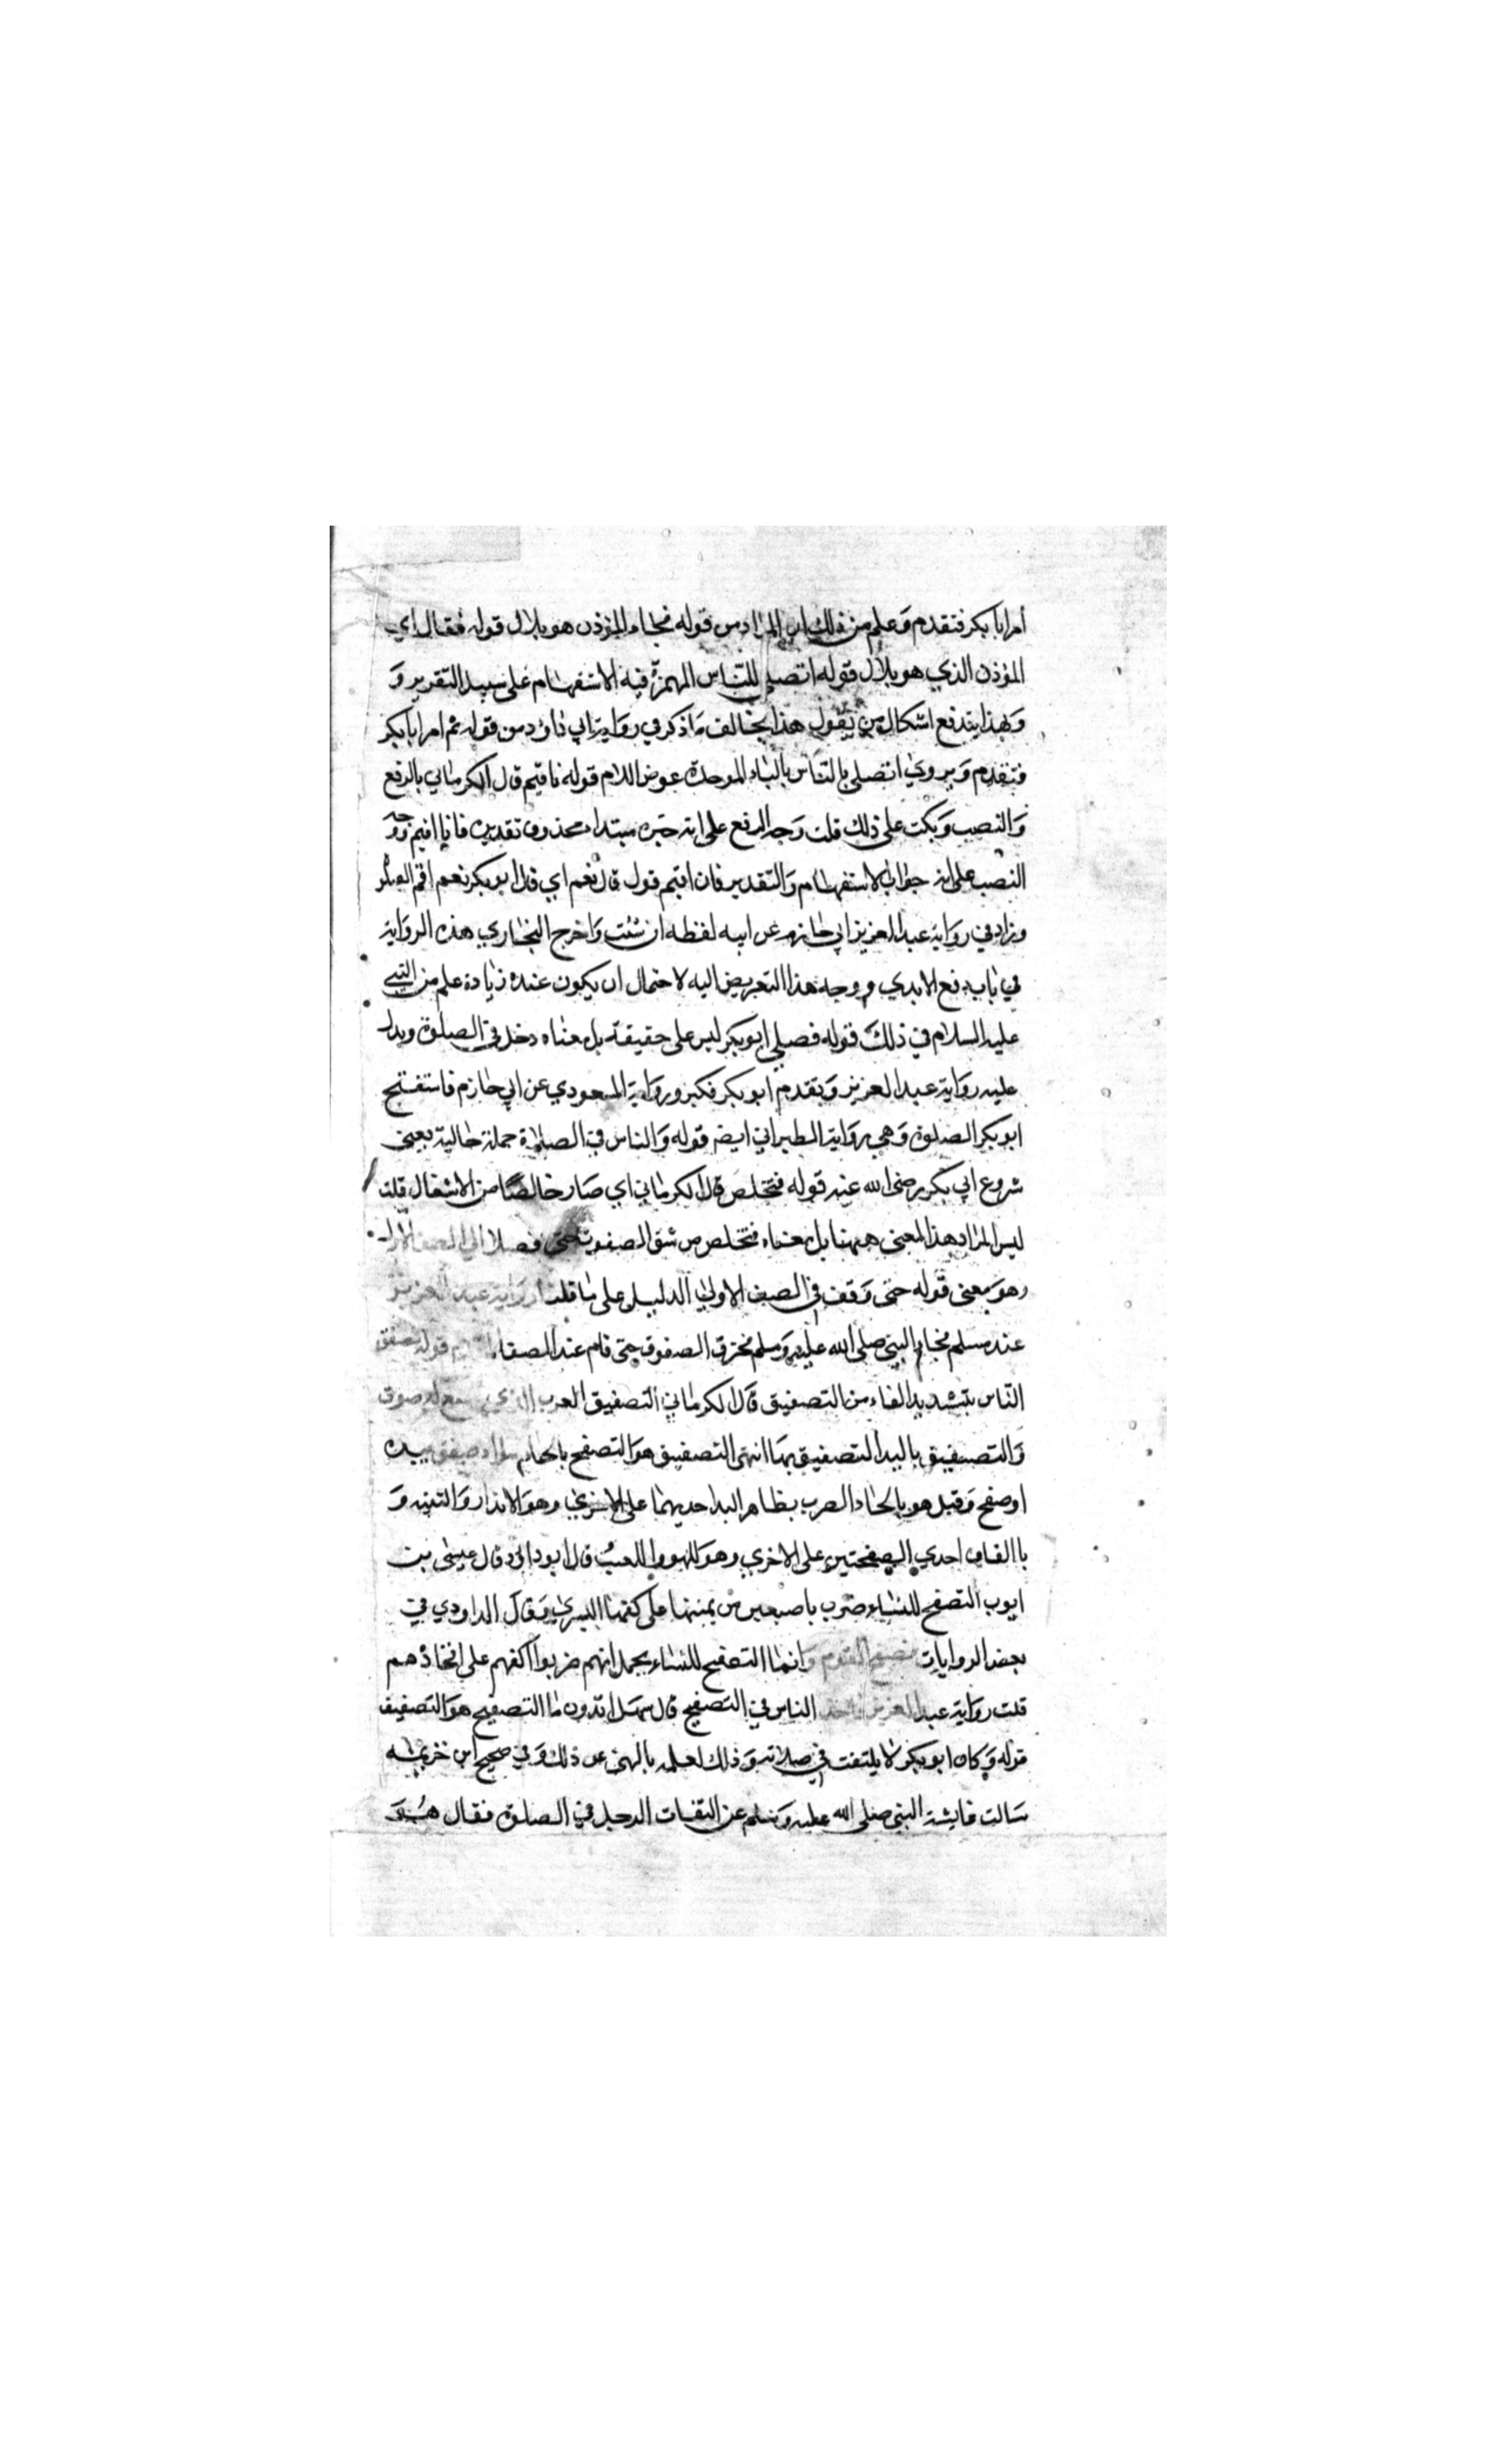 أمرابا بكر فتقدم وعلم من ذلك ان المراد من قوله فجاء المؤذن هو بلال قوله فقال اي
المؤذن الذي هو بلال قوله اتصلي للناس الهمزة فيه الاستفهام على سبيل التقرير و
وبهذا يندفع اشكال من يقول هذا يخالف ما ذكر في رواية ابي داود من قوله ثم امر ابا بكر
فتقدم ويروي اتصلي بالناس بالباء الموحدة عوض اللام قوله فاقيم قال الكرماني بالرفع
والنصب وسكت على ذلك قلت وجه الرفع على انه خبره مبتداء محذوف تقديره فانا اقيم ووجه
النصب على انه جواب الاستفهام والتقدير فان اقيم قول قال نعم اي قال ابو بكر نعم اقم الصلو
وزاد في رواية عبد العزيز ابي حازم عن ابيه لفظه ان شئت واخرج البخاري هذه الرواية
في باب رفع الايدي ووجه هذا التعريض اليه لاحتمال ان يكون عنده زيادة علم من النبي
عليه السلام في ذلك قوله فصلي ابو بكر ليس على حقيقة بل معناه دخل في الصلوة ويدل
عليه رواية عبد العزيز وتقدم ابو بكر فكبر ورواية المسعودي عن ابي حازم فاستفتح
ابو بكر الصلوة وهي رواية الطبراني ايضر قوله والناس في الصلاة جملة حالية يعني
شروع ابي بكر رضى الله عنه قوله فتخلص قال الكرماني اي صار خالصًا من الاشغال قلت
ليس المراد هذا المعني ههنا بل معناه فتخلص من شق الصفوف حتى وصل الي الصف الاول
وهو معنى قوله حتى وقف في الصف الاولي الدليل على ما قلت رواية عبد العزيز
عند مسلم فجاء النبي صلى الله عليه وسلم فخرق الصفوف حتى قام عند الصف قوله فصفق
الناس بتشديد الفاء من التصفيق قال الكرماني التصفيق الضرب الذي يسمع له صوت
والتصفيق باليد التصفيق بها انتهى التصفيق هو التصفح بالحاء سواء صفق بيده
او صفح وقيل هو بالحاء الضرب بظاهر اليد احديهما على الاخري وهو الانذار والتنبيه و
باالقاف احدي الصفحتين على الاخري وهو للهو واللعب قال ابو داود قال عيسى بن
ايوب التصفح للنساء ضرب باصبعين من يمينها على كفها اليسري وقال الداودي في
بعض الروايات فصفح القوم وانما التصفيح للنساء يحمل انهم ضربوا اكفهم على افخاذهم
قلت رواية عبد العزيز فاخذ الناس في التصفيح قال سهل اتدرون ما التصفيح هو التصفيف
قوله وكان ابو بكر لا يلتفت في صلاته وذلك لعلمه بالنهي عن ذلك وفي صحيح ابن خزيمه
سالت عايشة النبي صلى الله عليه وسلم عن التفات الرجل في الصلوة فقال هو